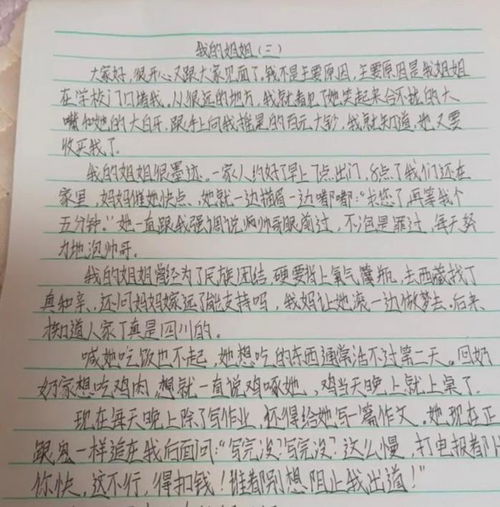 我的姐姐(三)
大家好,很开心又跟大家见面了,我不是主要原因,主要原因是我姐姐
在学校门口堵我,从很远的地方,我就看见了她笑起来合不拢的大
嘴和她的大白牙,跟手上向我摇晃的百元大钞,我就知道,她又要
收买我了。
我的姐姐很墨迹。一家人约好了早上7点出门,8点了我们还在
家里,妈妈催她快点、她就一边描眉一边嘟嘟:"求您了再等我个
五分钟。"她一直跟我强调说帅哥眼前过,不泡是罪过,每天努
力地泡帅哥。
我的姐姐曾经为了民族团结,硬要背上氧气瓶,去西藏找丁
真和亲,还问妈妈嫁远了能支持吗,我妈让她滚一边做梦去,后来
知道人家丁真是四川的。
喊她吃饭也不起,她想吃的东西通常活不过第二天。回奶
奶家想吃鸡肉,想就一直说鸡啄她,鸡当天晚上就上桌了
现在每天晚上除了写作业,还得给她写一篇作文。她现在正
跟鬼一样追在我后面问:"写完没?写完没?这么慢,打电报都比
你快,这不行,得扣钱!谁都别想阻止我出道!"